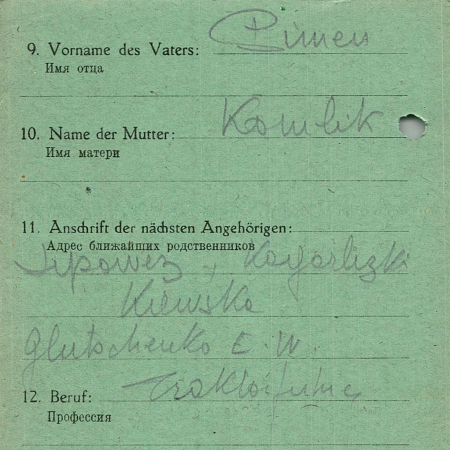 9. Vorname des Vaters: Pimen
Имя отца
10. Name der Mutter: Komlik
Имя матери
11. Anschrift der nächsten Angehörigen:
Адрес ближайших родственников
Lipowez, Kagarlizki
Kiewska
Glutschenko E. W.
12. Beruf: Traktorführer
Профессия